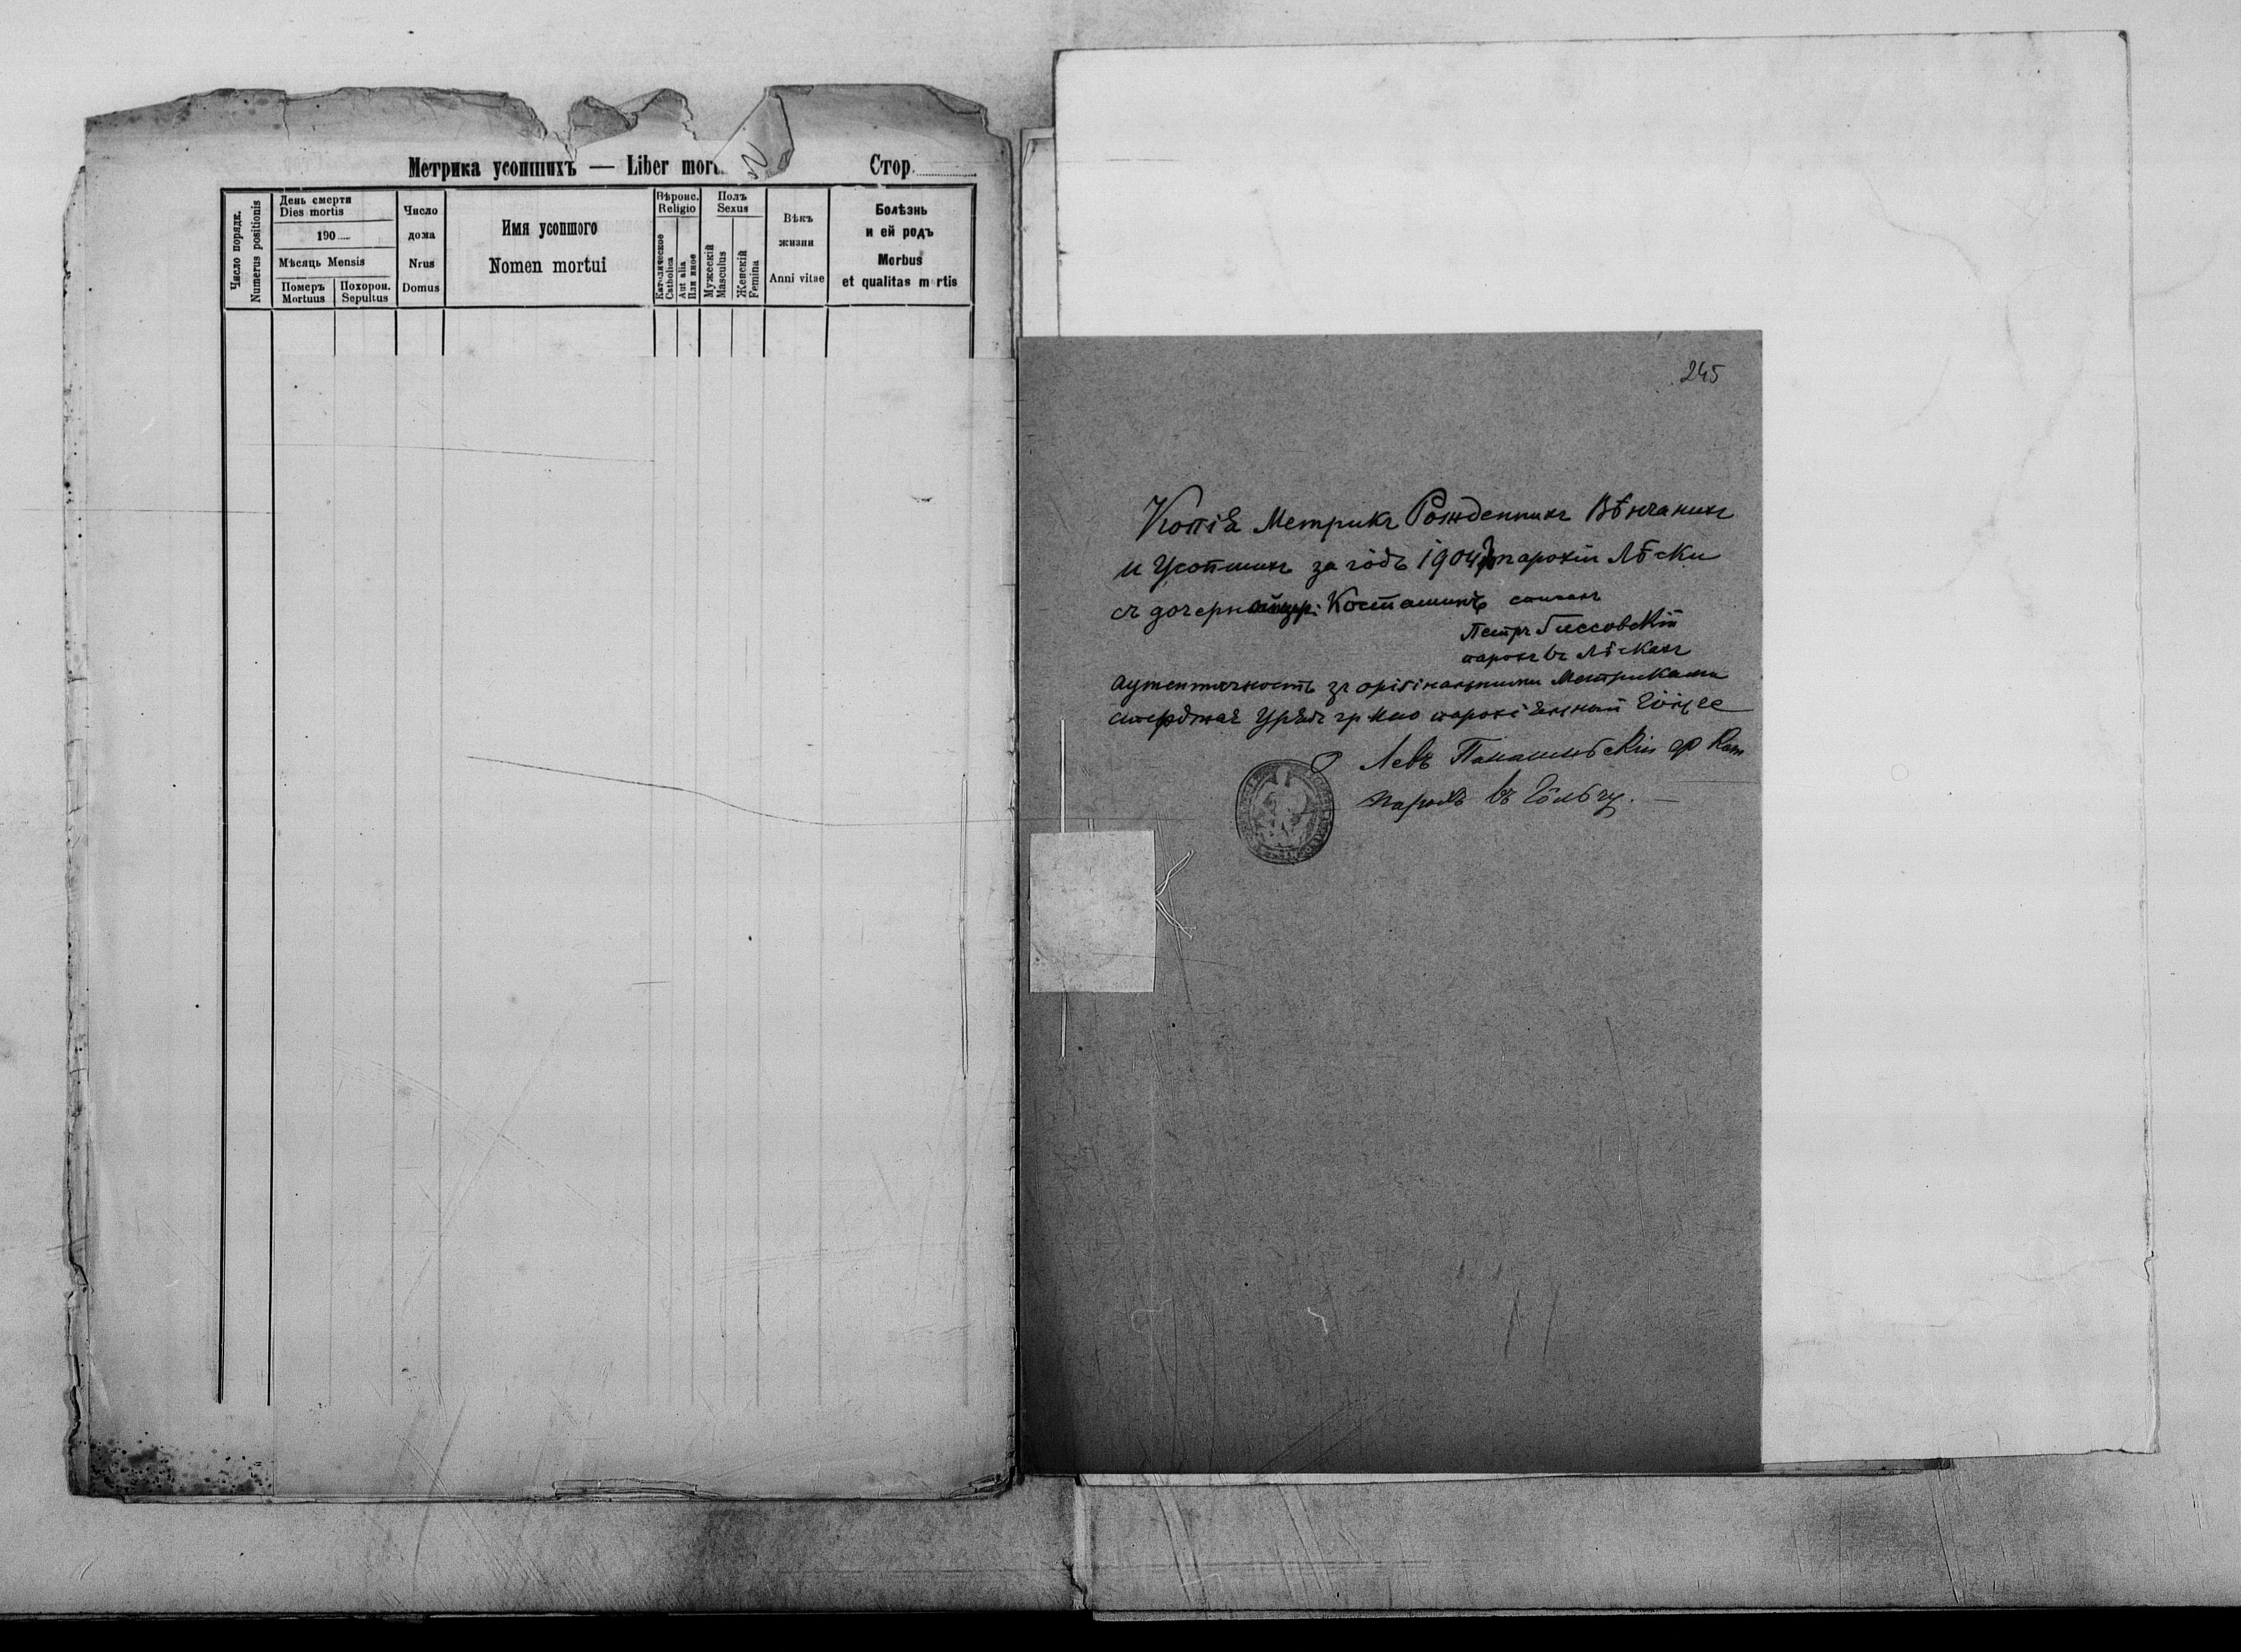 Метрика усопшихъ — Liber mort
Стор.
Число порядк.
Numerus positionis
День смерти
Dies mortis
190
Мѣсяць Mensis
Померъ
Mortuus
Похорон.
Sepultus
Число
дома
Nrus
Domus
Имя усопшого
Nomen mortui
Вѣроис.
Religio
Католическое
Catholica
Aut alia
Или иное
Полъ
Sexus
Мужескій
Masculus
Женскій
Femina
Вѣкъ
жизни
Anni vitae
Болѣзнь
и ей родъ
Morbus
et qualitas m rtis
245
Копія Метрикъ Рожденныхъ Вѣнчаныхъ
и Усопшихъ за годъ 1904 парохіи Лѣски
съ дочерн Косташинъ
Петръ
парохъ въ Лѣскахъ
аутентичность зъ оріґінальными Метриками
парохіяльный
Левъ кат
парохъ въ